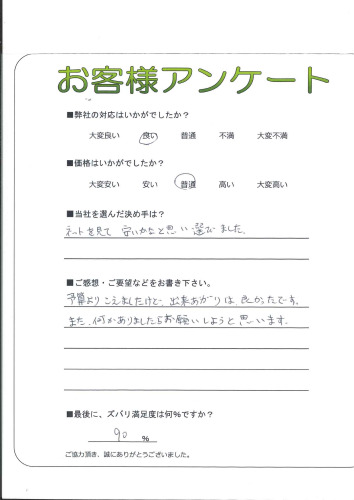 お客様アンケート
■弊社の対応はいかがでしたか？
大変良い 良い 普通 不満 大変不満
■価格はいかがでしたか？
大変安い 安い 普通 高い 大変高い
■当社を選んだ決め手は？
ネットを見て 安いかなと思い 選びました。
■ご感想・ご要望などをお書き下さい。
予算よりこえましたけど、出来あがりは良かったです。
また、何かありましたらお願いしようと思います。
■最後に、ズバリ満足度は何%ですか？
90 %
ご協力頂き、誠にありがとうございました。